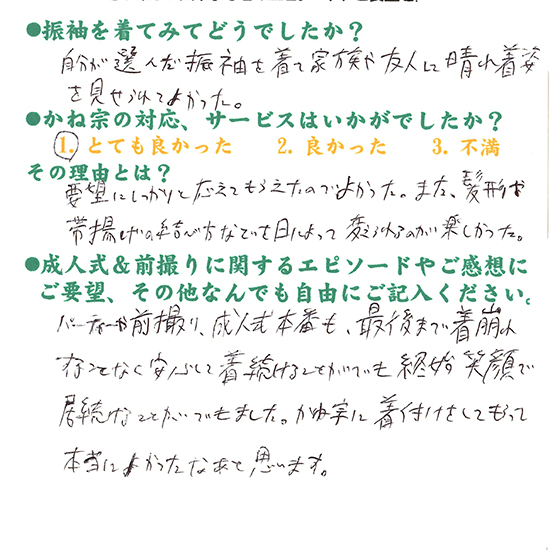 ●振袖を着てみてどうでしたか？
自分が選んだ振袖を着て家族や友人に晴れ着姿
を見せられてよかった。
●かね宗の対応、サービスはいかがでしたか？
1. とても良かった 2. 良かった 3. 不満
その理由とは？
要望にしっかりと応えてもらえたのでよかった。また、髪形や
帯揚げの結び方などを日によって変えられるのが楽しかった。
●成人式＆前撮りに関するエピソードやご感想に
ご要望、その他なんでも自由にご記入ください。
パーティーや前撮り、成人式本番も、最後まで着崩れ
することなく安心して着続けることができても終始笑顔で
居続けることができました。かね宗に着付けをしてもらって
本当によかったなあと思います。